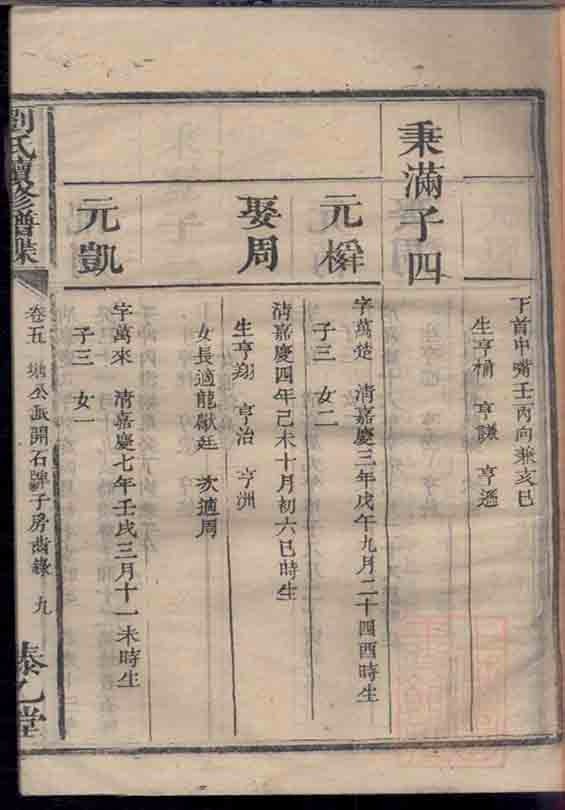 下首中嘴壬丙向兼亥巳
生亨楠 亨謙 亨遜
秉滿子四
元樨
字萬楚 清嘉慶三年戊午九月二十四酉時生
子三 女二
娶周
清嘉慶四年己未十月初六巳時生
生亨翔 亨治 亨洲
女長適龍獻廷 次適周
元凱
字萬來 清嘉慶七年壬戌三月十一未時生
子三 女一
劉氏續修譜牒
卷五 公派開石牌子房齒錄 九
泰乙堂